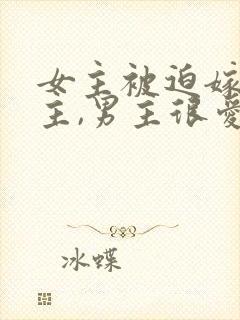 女主被迫嫁
主,男主很爱
冰蝶